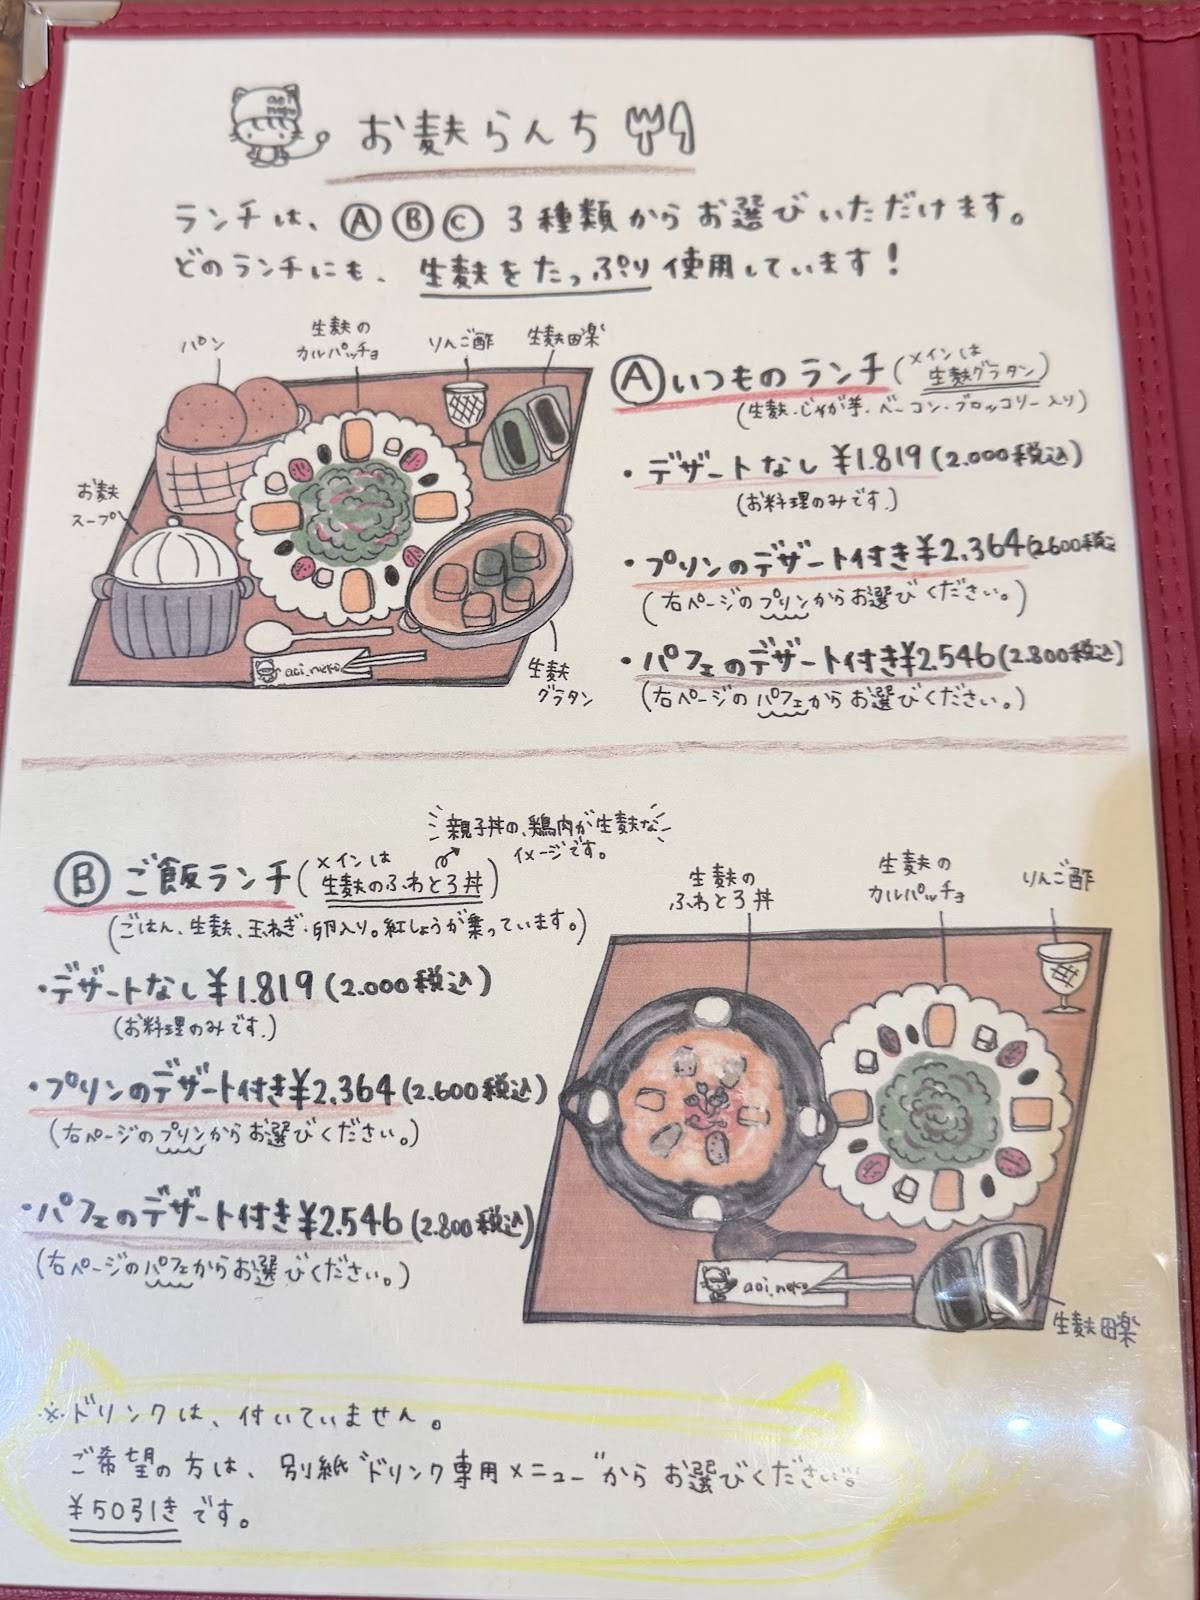 お麩らんち
ランチは、Ⓐ Ⓑ Ⓒ 3種類からお選びいただけます。
どのランチにも、生麩をたっぷり使用しています！
パン
生麩の
カルパッチョ
りんご酢
生麩田楽
お麩
スープ
aoi.neko
生麩
グラタン
Ⓐいつものランチ(メインは
生麩グラタン)
(生麩・じゃが芋、ベーコン・ブロッコリー入り)
・デザートなし ¥1.819(2.000税込)
(お料理のみです。)
・プリンのデザート付き¥2.364(2.600税込
(右ページのプリンからお選びください。)
・パフェのデザート付き¥2.546(2.800税込)
(右ページのパフェからお選びください。)
親子丼の、鶏肉が生麩な
イメージです。
Ⓑ ご飯ランチ(メインは
生麩のふわとろ丼)
(ごはん、生麩、玉ねぎ・卵入り。紅しょうが乗っています。)
・デザートなし¥1.819(2.000税込)
(お料理のみです。)
・プリンのデザート付き¥2.364(2.600税込)
(右ページのプリンからお選びください。)
・パフェのデザート付き¥2.546(2.800税込)
(右ページのパフェからお選びください。)
生麩の
ふわとろ丼
生麩の
カルパッチョ
りんご酢
aoi.neko
生麩田楽
※ドリンクは、付いていません。
ご希望の方は、別紙"ドリンク専用メニュー"からお選びください。
¥50引きです。